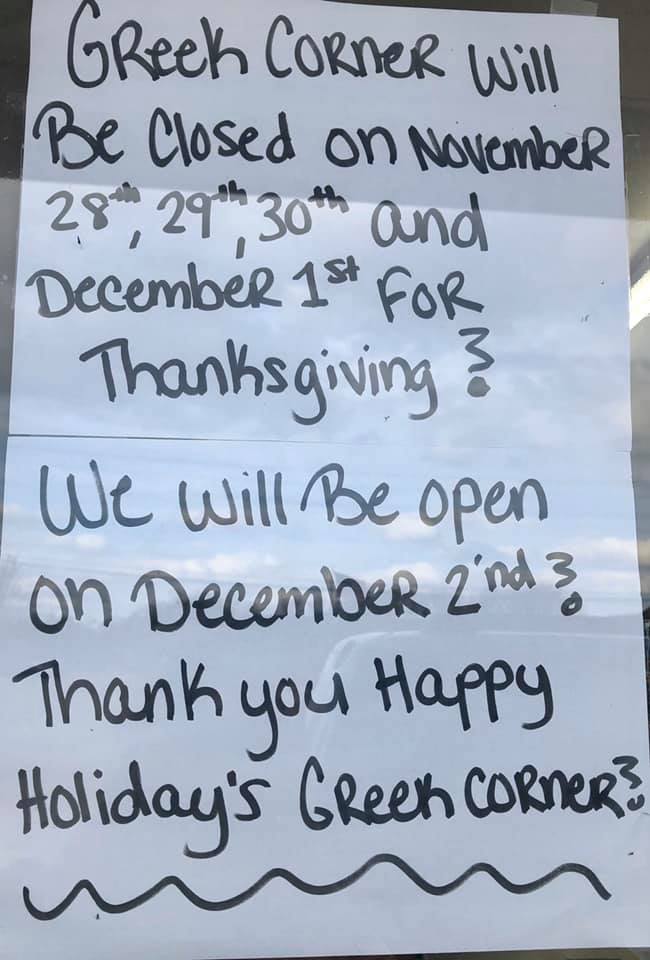 Greek Corner Will
Be Closed on November
28th, 29th, 30th and
December 1st For
Thanksgiving ?
We Will Be open
on December 2'nd ?
Thank you Happy
Holiday's Greek Corner?